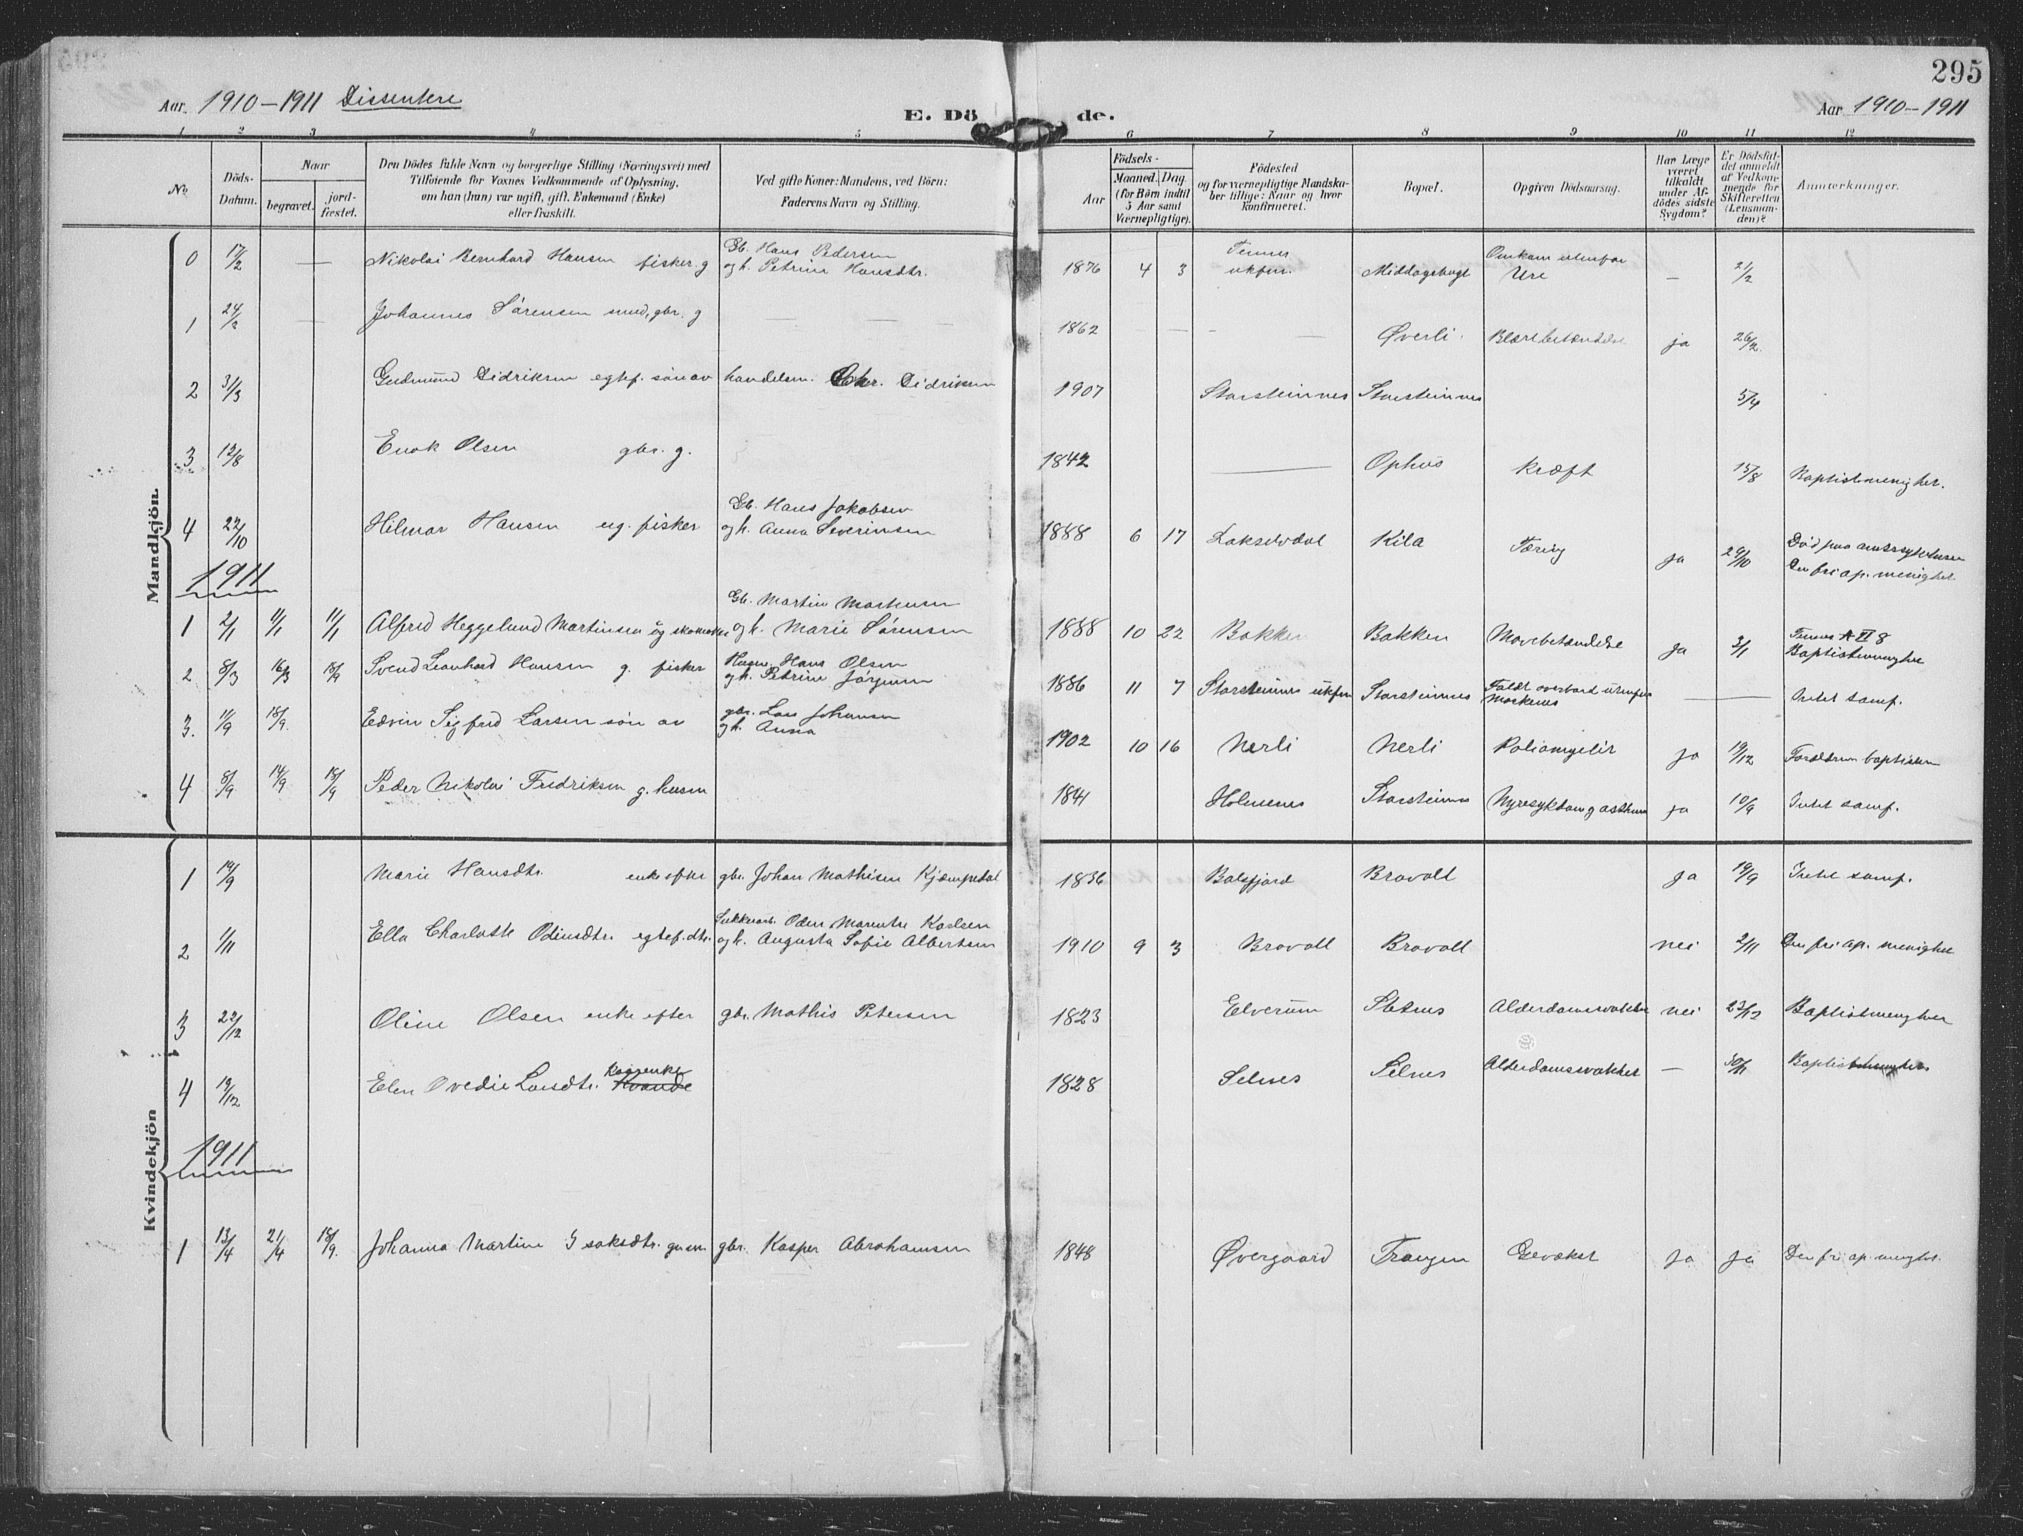 295
Aar. 1910-1911 Dissentere
E. Dö de.
Aar 1910-1911
1 2 3 4 5 6 7 8 9 10 11 12
No.
Döds-Datum.
Naar
begravet.
jord-fæstet.
Den Dödes fulde Navn og borgerlige Stilling (Næringsvei) med
Tilföiende for Voxnes Vedkommende af Oplysning,
om han (hun) var ugift, gift, Enkemand (Enke)
eller fraskilt.
Ved gifte Koner: Mandens, ved Börn:
Faderens Navn og Stilling.
Födsels-
Aar
Maaned. Dag.
(for Börn indtil
5 Aar samt
Værnepligtige).
Födested
og for værnepligtige Mandska-
ber tillige: Naar og hvor
konfirmeret.
Bopæl.
Opgiven Dödsaarsag.
Har Læge
været
tilkaldt
under Af-
dödes sidste
Sygdom?
Er Dödsfal-
det anmeldt
af Vedkom-
mende for
Skifteretten
(Lensman-
den)?
Anmærkninger.
Mandkjön.
0 17/2 — Nikolai Bernhard Hansen fisker g Gb. Hans Pedersen og h. Petrine Hansdtr. 1876 4 3 Tennes ukfm. Middagsbugt Omkom utenfor Ure — 21/2
1 24/2 — Johannes Sørensen smed, gbr. g — — — 1862 — — — Øverli Blærebetændelse ja 26/2
2 31/3 Gudmund Didriksen egtef. søn av handelsm. Chr. Didriksen 1907 Storsteinnes Storsteinnes 5/4
3 12/8 Enok Olsen gbr. g. 1842 — Ophus Kræft 15/8 Baptistmenighet.
4 22/10 Hilmar Hansen ug. fisker Gb. Hans Jakobsen og h. Anna Severinsen 1888 6 17 Lakselvdal Kila Tæring ja 29/10 Død paa amtssykehuset Den fri ap. menighet
1911
1 2/1 11/1 11/1 Alfred Heggelund Martinsen ug skomaker Gb. Martin Mortensen og h. Marie Sørensen 1888 10 22 Bakken Bakken Mavebetændelse ja 3/1 Tennes A II 8 Baptistmenighet
2 8/3 16/3 18/9 Svend Leonhard Hansen g. fisker Husm. Hans Olsen og h. Petrine Jørgensen 1886 11 7 Storsteinnes ukfm Storsteinnes Faldt overbord utenfor Moskenes — — Intet samf.
3. 11/9 18/9. Edvin Sigfred Larsen søn av gbr. Lars Johansen og h. Anna 1902 10 16 Nerli Nerli Poliomyelit ja 19/12 Forældrene baptister
4 8/9 14/9 18/9 Peder Nikolai Fredriksen g. husm 1841 Holmenes Storsteinnes Nyresykdom g asthma ja 10/9 Intet samf.
Kvindekjön
1 14/9 Marie Hansdtr. enke efter gbr. Johan Mathisen Kjæmpedal 1836 Balsfjord Bravolt ja 19/9 Intet samf.
2 1/11 Ella Charlotte Odinsdtr. egtef. dtr. Odin Marentz Karlsen og h. Augusta Sofie Albertsen 1910 9 3 Bravolt Bravolt nei 2/11 Den fri ap. menighet
3 22/12 Oline Olsen enke efter gbr. Mathis Petersen 1823 Elverum Stetnes Alderdomssvakhet nei 23/12 Baptistmenighet
4 19/12 Elen Ovedie Larsdtr. Kaarenke Kvande 1828 Selnes Selnes Alderdomssvakhet — 30/11 Baptistmenighet
1911
1 13/4 21/4 18/9. Johanna Martine Isaksdtr. gbr. Kasper Abrahamsen 1848 Øvergaard Trangen Gevækst ja ja Den fri ap. menighet.